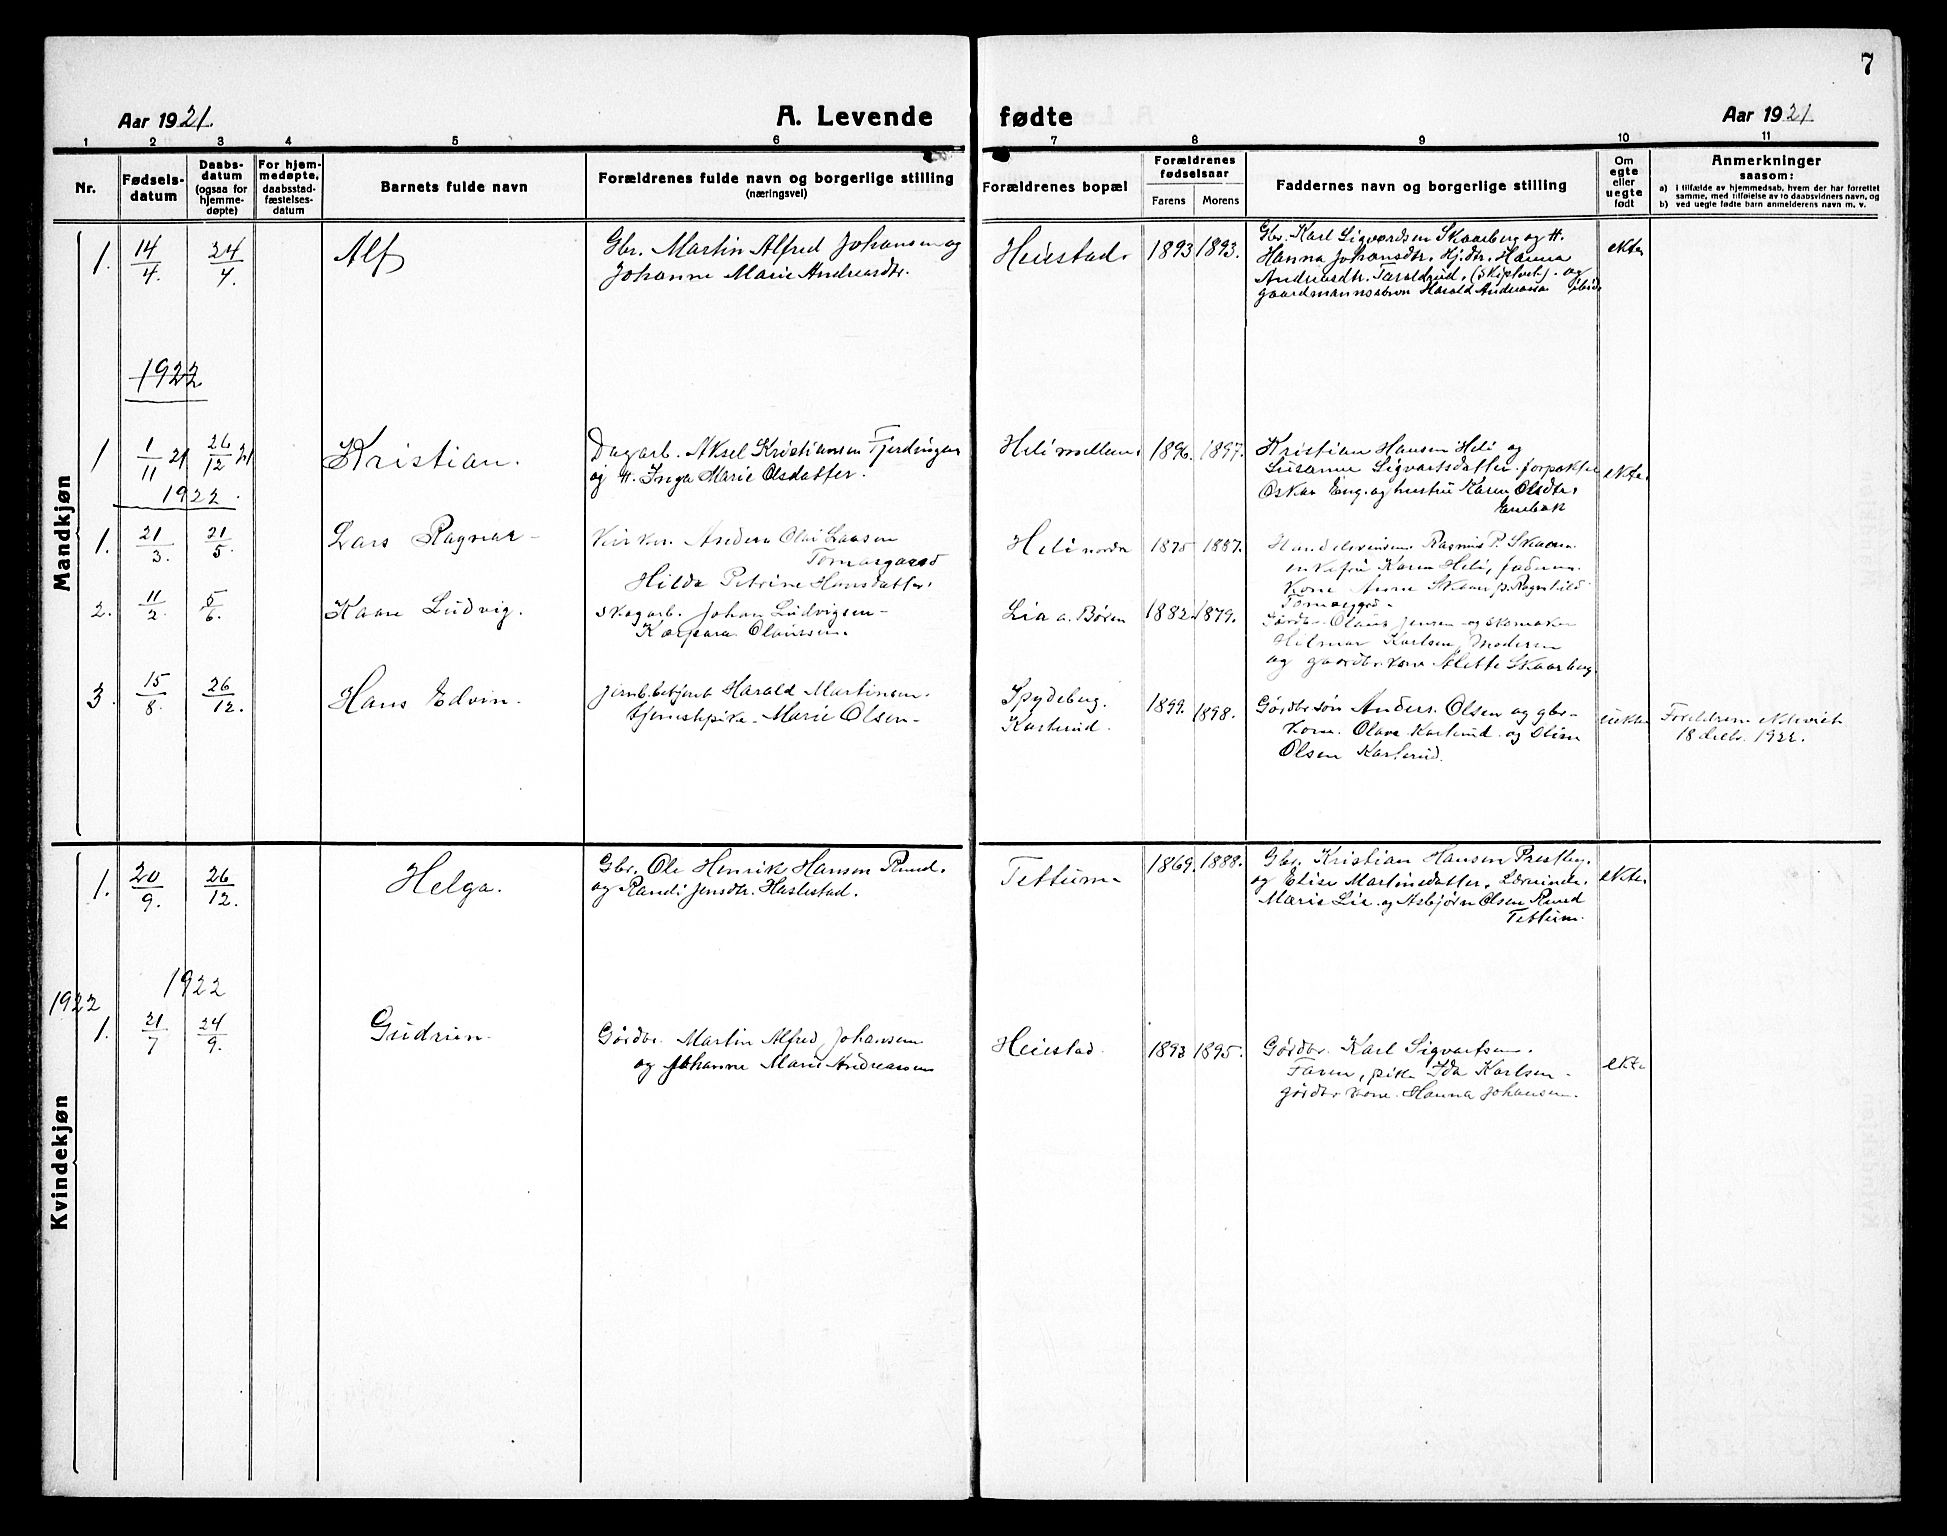 7
Aar 1921.
A. Levende
fødte
Aar 1921
1 2 3 4 5 6 7 8 9 10 11
Nr.
Fødsels-
datum
Daabs-
datum
(ogsaa for
hjemme-
døpte)
For hjem-
medøpte,
daabsstad-
fæstelses-
datum
Barnets fulde navn
Forældrenes fulde navn og borgerlige stilling
(næringsvei)
Forældrenes bopæl
Forældrenes
fødselsaar
Farens Morens
Faddernes navn og borgerlige stilling
Om
egte
eller
uegte
født
Anmerkninger
saasom:
a) i tilfælde av hjemmedaab, hvem der har forrettet
samme, med tilføielse av to daabsvidners navn, og
b) ved uegte fødte barn anmelderens navn m. v.
Mandkjøn
1. 14/4. 24/4. Alf
Gbr. Martin Alfred Johansen og
Johanne Marie Andreasdtr.
Heiestad. 1893 1893.
Gbr. Karl Sigvardsen Skaarberg og H.
Hanna Johansdtr. Hjdtr. Hanna
Andreasdtr. Taraldrud. (Skiptvet). og
gaardmannssøn Harald Andreassen ibid.
ekte
1922
1 1/11 21 26/12 21 Kristian.
Dagarb. Aksel Kristiansen Fjerdingen
og H. Inga Marie Olsdatter.
Heli mellem. 1896. 1897.
Kristian Hansen Heli og
Susanne Sigvartsdatter. forpakter
Oskar Eng. og hustru Karen Olsdtr.
Enebak
ekte.
1922.
1. 21/3. 21/5. Lars Ragnar
Anders Olai Laasen
Tomasgaard
Hilda Petrine Hansdatter.
Heli nordre 1875 1887.
Rasmus P. Skaaren
enkefru Karen Heli, faderen
Kone Anne Skaar p. Ragnhild
2. 11/2 5/6. Kaare Ludvig.
Skogarb. Johan Ludvigsen
Kaspara Olaussen.
Lia a. Børen 1882 1879.
Gårdbr. Olaus Jensen og skomaker
Hilmar Karlsen, Moderen
og gaardbr. kone Alette Skaarberg.
3. 15/8. 26/12. Hans Edvin.
Jernb.betjent Harald Martinsen.
tjenestepike Marie Olsen
Spydeberg.
Karlsrud. 1899. 1898.
Gårdbr søn Anders Olsen og gbr-
kone. Olava Karlsrud og
Olsen Karlsrud.
uekte
Foreldrene ekteviet
18 1922.
Kvindekjøn
1. 20/9. 26/12. Helga.
Gbr. Ole Henrik Hansen Ruud.
og Randi Jensdtr. Haslestad.
Tettum 1869. 1888.
Gbr. Kristian Hansen Prestby.
og Elise Martinsdatter. Lærerinde.
Marie Lie. og Asbjørn Olsen Ruud
Tettum.
ekte.
1922
1922
1. 21/7 24/9. Gudrun.
Gårdbr. Martin Alfred Johansen
og Johanne Marie Andreassen
Heiestad. 1893 1895.
Gårdbr. Karl Sigvartsen.
Faren, pike Ida Karlsen
gårdbr kone. Hanna Johansen.
ekte